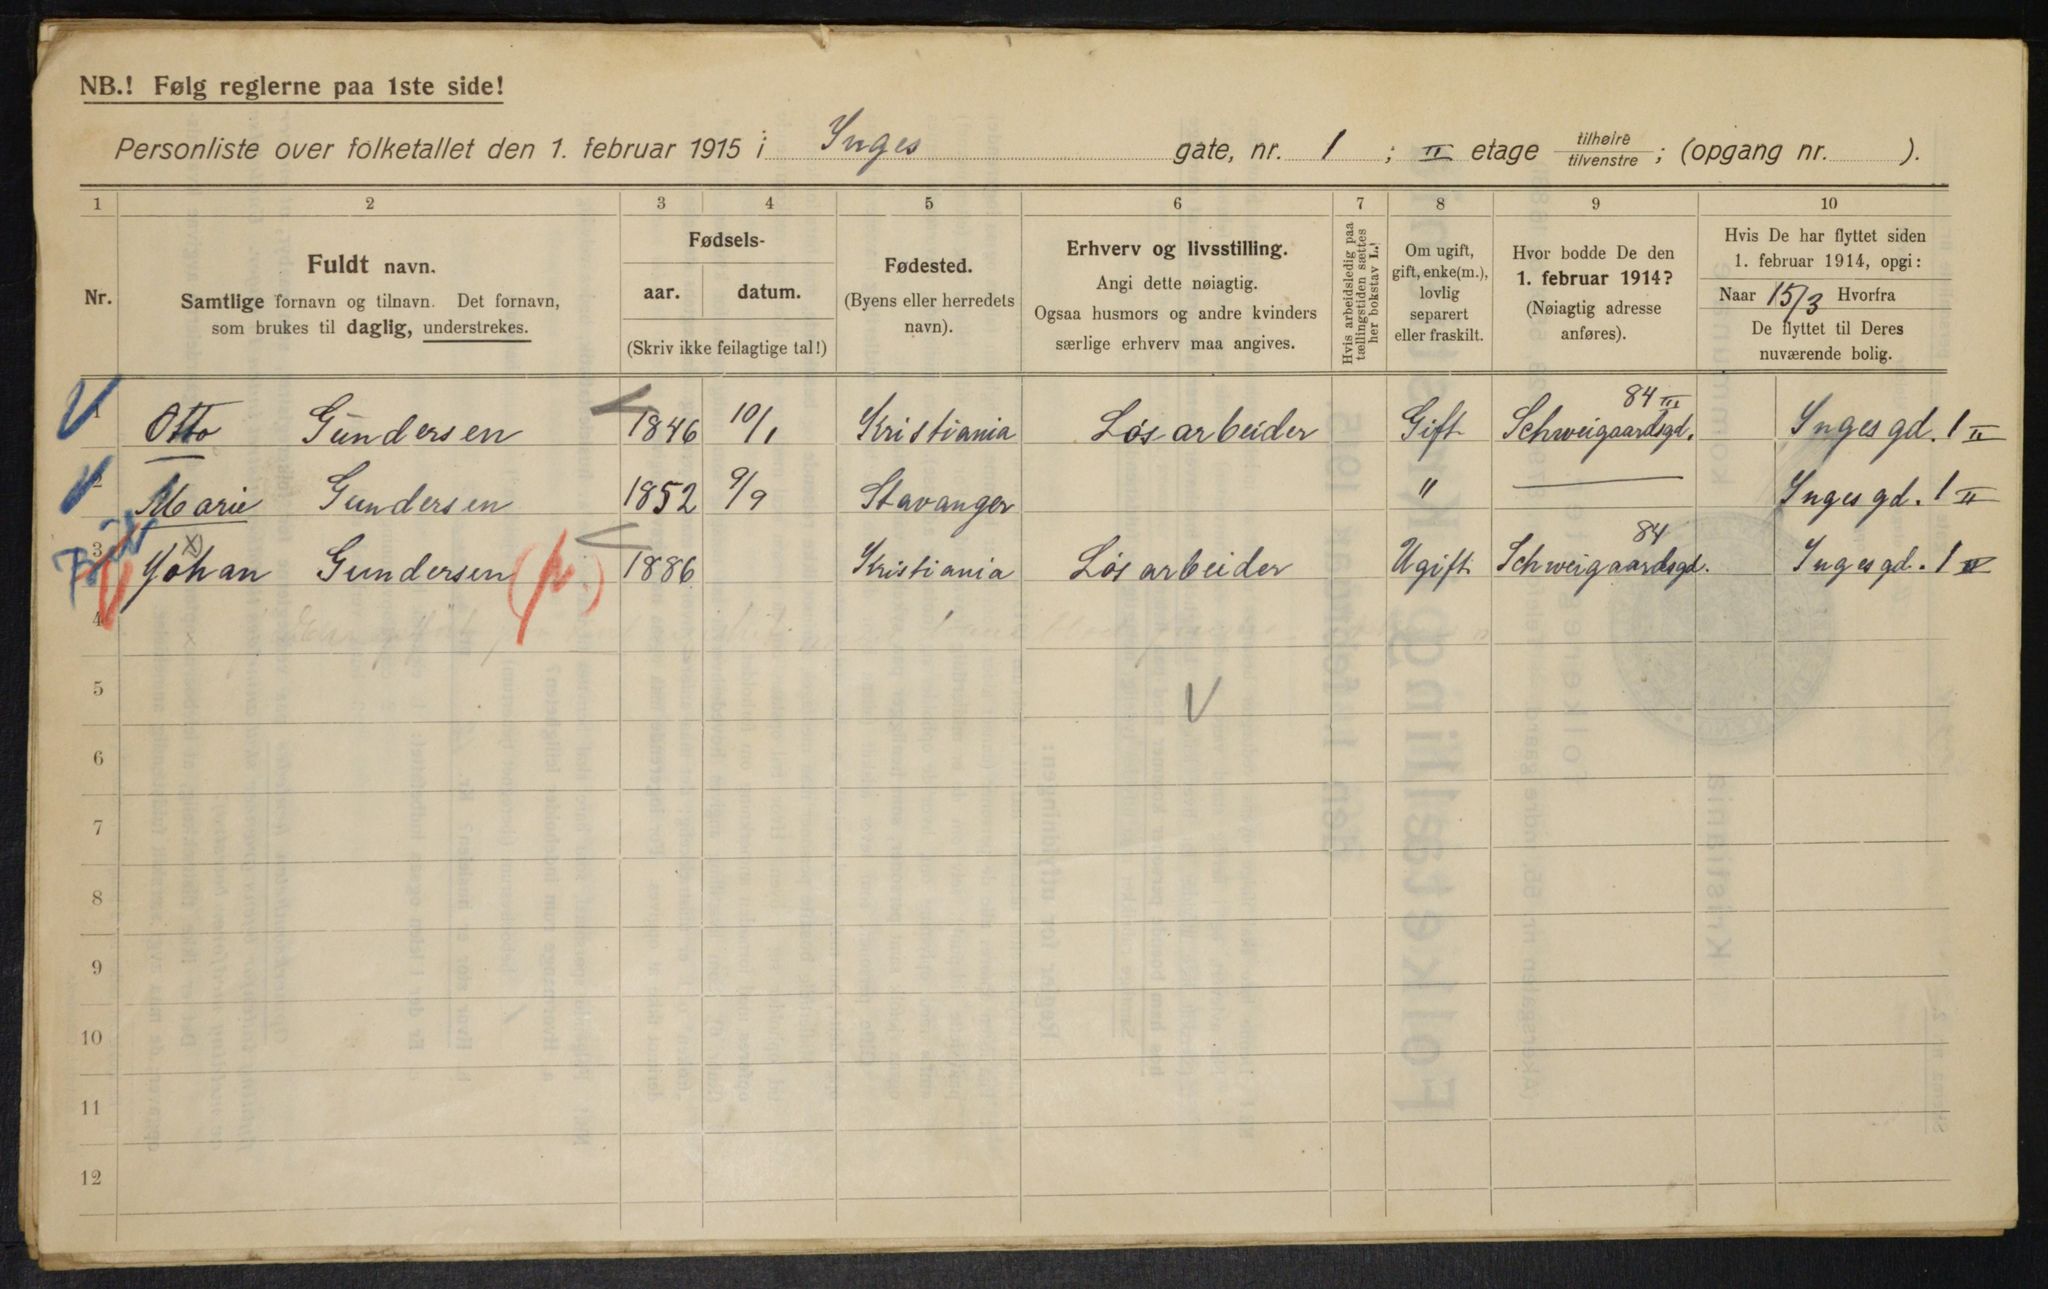 NB.! Følg reglerne paa 1ste side!
Personliste over folketallet den 1. februar 1915 i Inges gate, nr. 1 ; II etage tilhøire/tilvenstre ; (opgang nr. ).
1 2 3 4 5 6 7 8 9 10
Nr.
Fuldt navn.
Samtlige fornavn og tilnavn. Det fornavn,
som brukes til daglig, understrekes.
Fødsels-
aar. datum.
(Skriv ikke feilagtige tal!)
Fødested.
(Byens eller herredets
navn).
Erhverv og livsstilling.
Angi dette nøiagtig.
Ogsaa husmors og andre kvinders
særlige erhverv maa angives.
Hvis arbeidsledig paa
tællingstiden sættes
her bokstav L.!
Om ugift,
gift, enke(m.),
lovlig
separert
eller fraskilt.
Hvor bodde De den
1. februar 1914?
(Nøiagtig adresse
anføres).
Hvis De har flyttet siden
1. februar 1914, opgi:
Naar 15/3 Hvorfra
De flyttet til Deres
nuværende bolig.
1 Otto Gundersen 1846 10/1 Kristiania Løsarbeider Gift Schweigaardsgd. 84 III Inges gd. 1 II
2 Marie Gundersen 1852 9/9 Stavanger " — Inges gd. 1 II
3 Johan x) Gundersen 1886 Kristiania Løsarbeider Ugift Schweigaardsgd. 84 Inges gd. 1 II
4
5
6
7
8
9
10
11
12